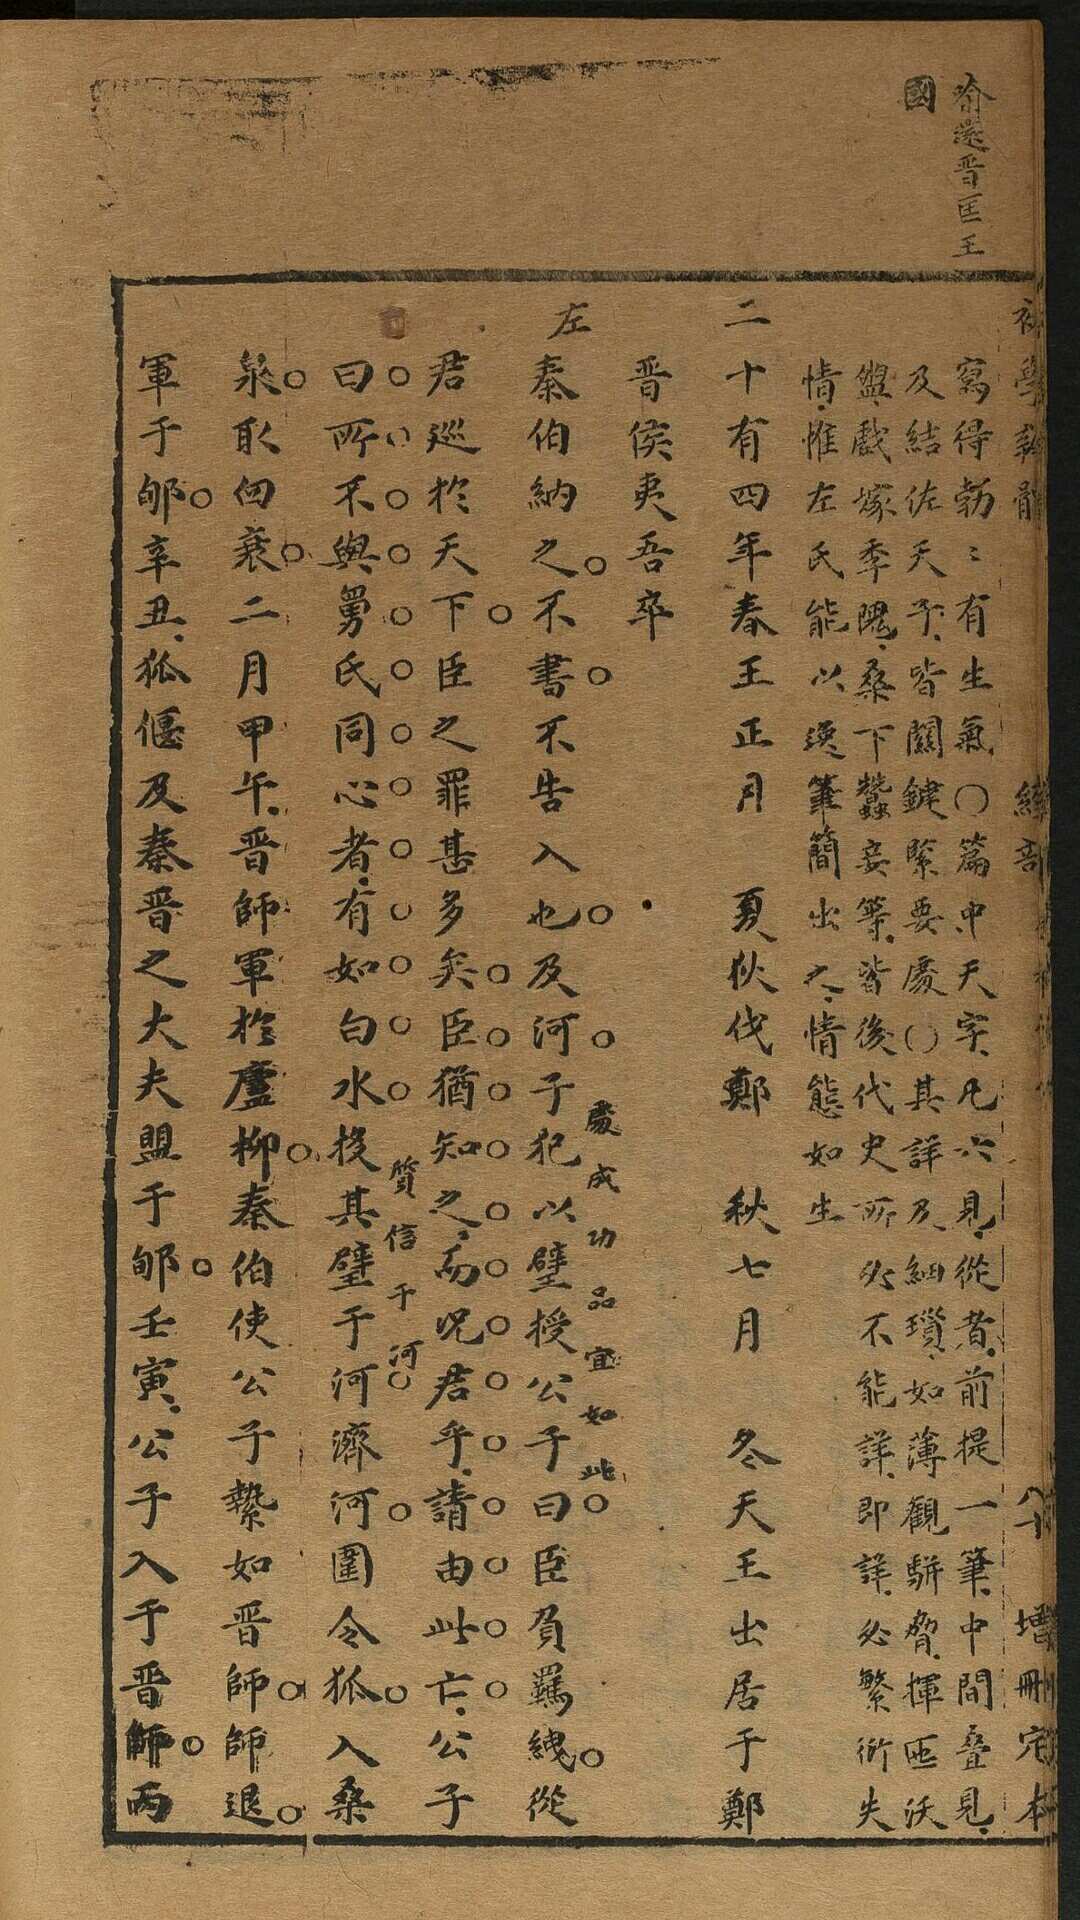 喻遠晋匡王
國
初學 八十 增刪定本
寫得勃〻有生氣〇篇中天字凡六見從者前提一筆中間叠見
及結佐天子皆關鍵緊要處〇其詳及細瑣如薄觀駢脅揮匜沃
盥戲嫁季隗桑下蠶妾等皆後代史所必不能詳即詳必繁衍失
情惟左氏能以逸筆簡出之情態如生
二十有四年春王正月 夏狄伐鄭 秋七月 冬天王出居于鄭
晋侯夷吾卒
左
秦伯納之不書不告入也及河子犯以璧授公子曰臣負羈絏從
處成功品宜如此
君巡於天下臣之罪甚多矣臣猶知之而况君乎請由此亡公子
曰所不與舅氏同心者有如白水投其璧于河濟河圍令狐入桑
質信于河
泉取臼衰二月甲午晋師軍於廬柳秦伯使公子縶如晋師師退
軍于郇辛丑狐偃及秦晋之大夫盟于郇壬寅公子入于晋師丙